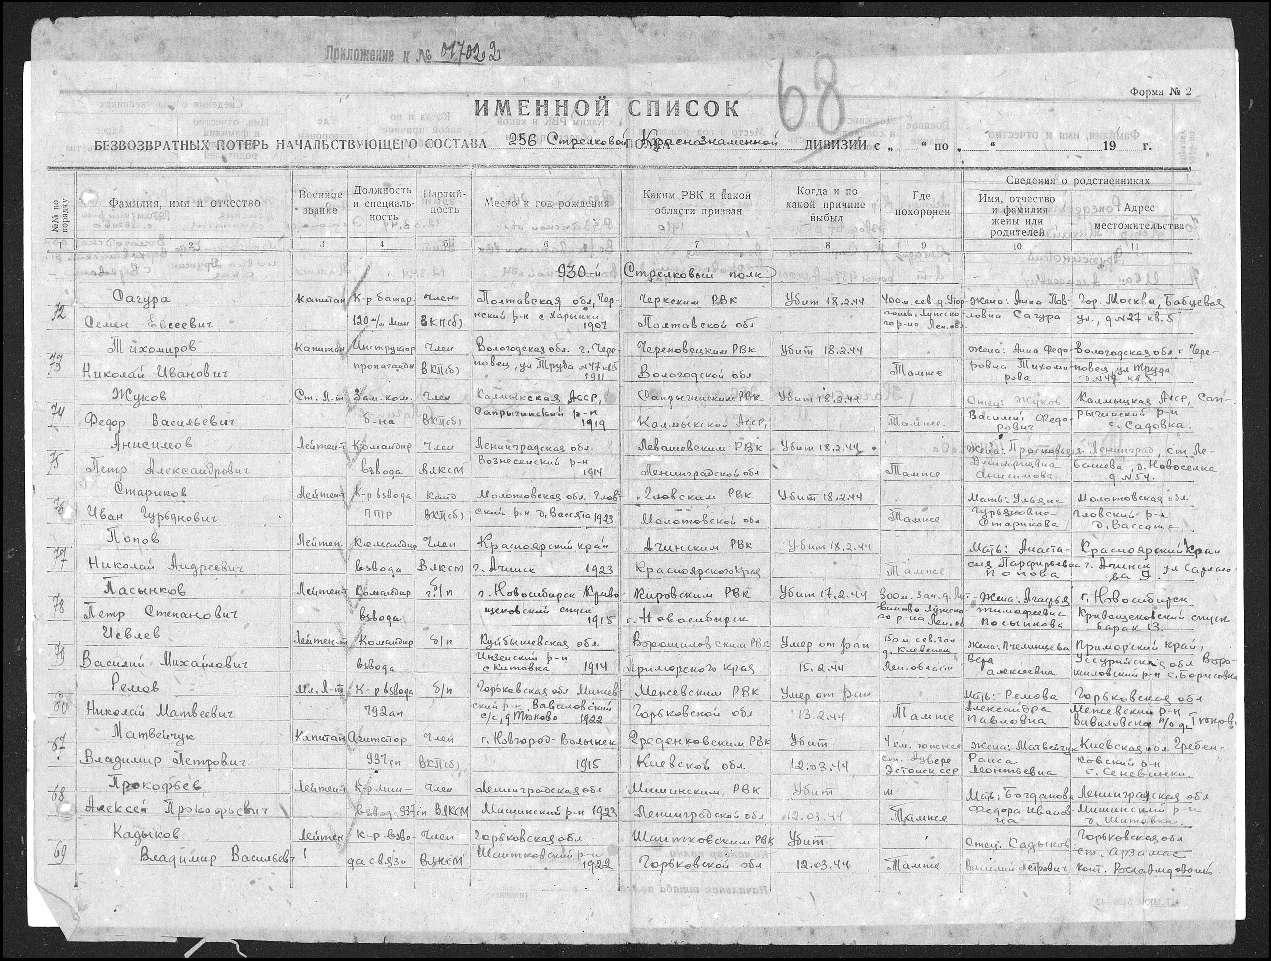 Приложение к № 017022
68
Форма № 2
ИМЕННОЙ СПИСОК
БЕЗВОЗВРАТНЫХ ПОТЕРЬ НАЧАЛЬСТВУЮЩЕГО СОСТАВА 256 Стрелковой Краснознаменной ДИВИЗИИ с „ “ по „ “ 19 г.
№№ по порядку
Фамилия, имя и отчество
Военное звание
Должность и специальность
Партийность
Место и год рождения
Каким РВК и какой области призван
Когда и по какой причине выбыл
Где похоронен
Сведения о родственниках
Имя, отчество и фамилия жены или родителей
Адрес местожительства
1 2 3 4 5 6 7 8 9 10 11
930-й Стрелковый полк
Сагура Капитан К-р батар. член Полтавская обл, Чер- Черкским РВК Убит 18.2.44 жена: Анна Пав- Гор. Москва, Бабуевая
72 Семен Евсеевич 120 м/м мин ВКП(б) нский р-н с Харьки 1907 Полтавской обл ловна Сагура ул., д №27 кв. 5
Тихомиров Капитан Инструктор Член Вологодская обл. г. Чере- Череповецким РВК Убит 18.2.44 жена: Анна Федо- Вологодская обл г Чере-
73 Николай Иванович пропаганды ВКП(б) повец, ул Труда №47 кв5 1911 Вологодской обл Там же ровна Тихоми- рова повец ул Труда д №47 кв 5
Жуков Ст. Л-т Зам. ком. Член Калмыкская АССР, Сапрыгинским РВК Убит 18.2.44 Отец: Жуков Калмыцкая АССР, Сап-
74 Федор Васильевич б-на ВКП(б) Сапрыгинский р-н 1919 Калмыкской АССР, Там же Василий Федо- рович рыгинский р-н с. Садовка.
Анисимов Лейтен-т Командир Член Ленинградская обл Левашевским РВК Убит 18.2.44 жена: Прасковья г. Ленинград, ст. Ле-
75 Петр Александрович взвода ВЛКСМ Вознесенский р-н 1914 Ленинградской обл Там же Дмитриевна Анисимова вашева, д. Новоселки д №54.
Стариков Лейтен-т К-р взвода канд Молотовская обл. Гдов- Гловским РВК Убит 18.2.44 Мать: Ульяна Молотовская обл.
76 Иван Гурьянович ПТР ВКП(б) ский р-н д. Вассята 1923 Молотовской обл Там же Гурьяновна Старикова Гловский р-н д. Вассята
Попов Лейтен. Командир Член Красноярский край Ачинским РВК Убит 18.2.44 Мать: Анаста- Красноярский край
77 Николай Андреевич взвода ВЛКСМ г. Ачинск 1923 Красноярского края Там же сия Парфирьевна Попова г. Ачинск
Пасынков Лейтен-т Командир б/п г. Новосибирск Криво- Кировским РВК Убит 17.2.44 жена: Агафья г. Новосибирск
78 Петр Степанович взвода щековский спуск 1915 г. Новосибирск Тимофеевна Пасынкова Кривощековский спуск барак 13.
Иевлев Лейтен-т Командир б/п Куйбышевская обл. Ворошиловским РВК Умер от ран жена: Пчелинцева Приморский край,
79 Василий Михайлович взвода Инзенский р-н с Китовка 1914 Приморского края 15.2.44 Лен. области Вера Алексеевна Уссурийская обл Воро- шиловский р-н с. Борисовка
Ремов Мл. Л-т К-р взвода б/п Горьковская обл Мижев- Межевским РВК Умер от ран Мать: Ремова Горьковская обл
80 Николай Матвеевич 792 ап ский р-н, Вавиловский с/с, д Тюково 1922 Горьковской обл 13.2.44 Там же Александра Павловна Межевский р-н
Матвейчук Капитан Агитатор Член г. Новгород-Волынск Гребенковским РВК Убит жена: Матвейчук Киевская обл. Гребен-
67 Владимир Петрович 937 сп ВКП(б) 1915 Киевской обл. 12.03.44 Эстонск ССР Раиса Леонтьевна ковский р-н с. Сеневинки.
Прокофьев Лейтен-т К-р мин- Член Ленинградская обл Мишинским РВК Убит Мать: Богданова Ленинградская обл
68 Алексей Прокофьевич взвод. 937 сп ВЛКСМ Мишинский р-н 1923 Ленинградской обл 12.03.44 Там же Федора Иванов- на Мишинский р-н
Кадыков Лейтен К-р взво- Член Горьковская обл Шатковским РВК Убит Отец: Садыков Горьковская обл
69 Владимир Васильевич да связи ВЛКСМ Шатковский р-н 1922 Горьковской обл 12.03.44 Там же Василий Петрович ст. Арзамас